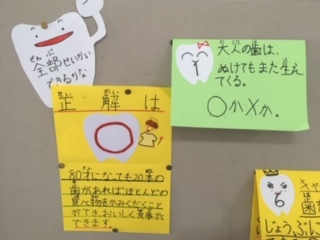 全部せいかい
できるかな
大人の歯は、
ぬけてもまた生え
てくる。
○か×か。
正解は
○
80才になっても20本の
歯があれば、ほとんどの
食べ物をかみくだくこと
ができ、おいしく食事が
できます。
6